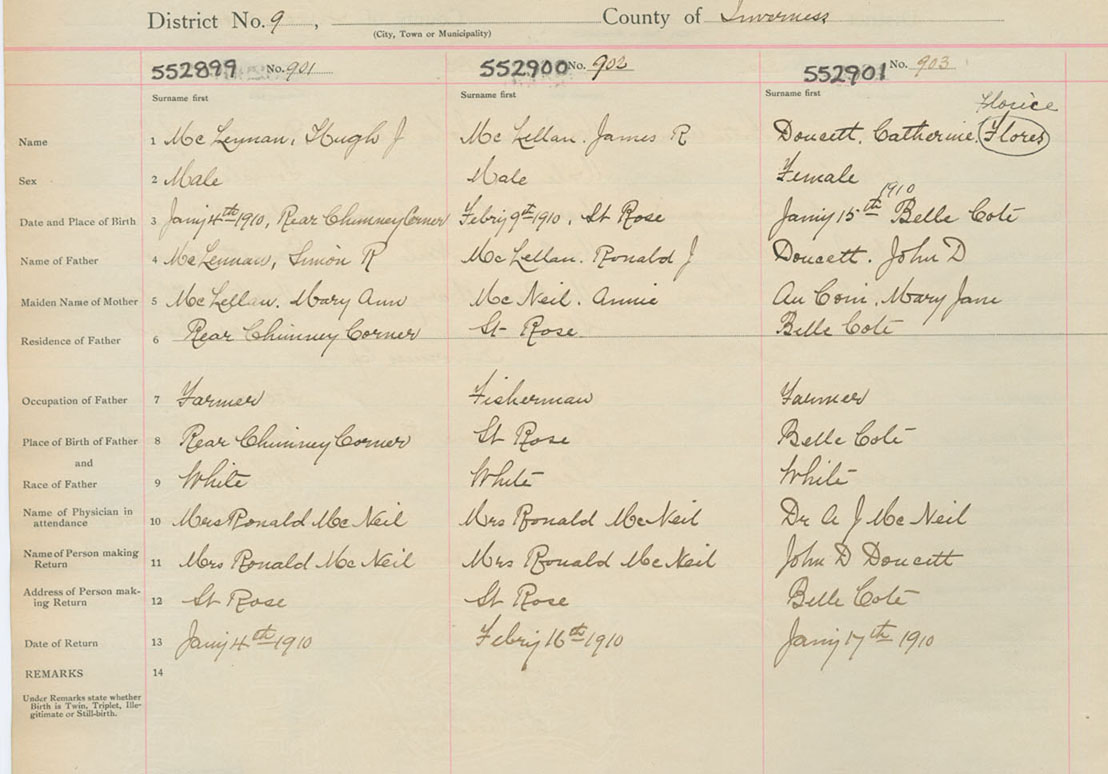 District No. 9 , County of Inverness
(City, Town or Municipality)
552899 No. 901 552900 No. 902 552901 No. 903
Surname first Surname first Surname first
Florice
Name 1 McLennan, Hugh J McLellan. James R Doucett. Catherine. Flores
Sex 2 Male Male Female
1910
Date and Place of Birth 3 Jany 4th 1910, Rear Chimney Corner Febry 9th 1910, St Rose Jany 15th Belle Cote
Name of Father 4 McLennan, Simon R McLellan. Ronald J Doucett. John D
Maiden Name of Mother 5 McLellan. Mary Ann McNeil. Annie Au Coin, Mary Jane
Residence of Father 6 Rear Chimney Corner St Rose Belle Cote
Occupation of Father 7 Farmer Fisherman Farmer
Place of Birth of Father 8 Rear Chimney Corner St Rose Belle Cote
and
Race of Father 9 White White White
Name of Physician in attendance 10 Mrs Ronald McNeil Mrs Ronald McNeil Dr A J McNeil
Name of Person making Return 11 Mrs Ronald McNeil Mrs Ronald McNeil John D Doucett
Address of Person mak-ing Return 12 St Rose St Rose Belle Cote
Date of Return 13 Jany 4th 1910 Febry 16th 1910 Jany 17th 1910
REMARKS 14
Under Remarks state whether
Birth is Twin, Triplet, Ille-
gitimate or Still-birth.